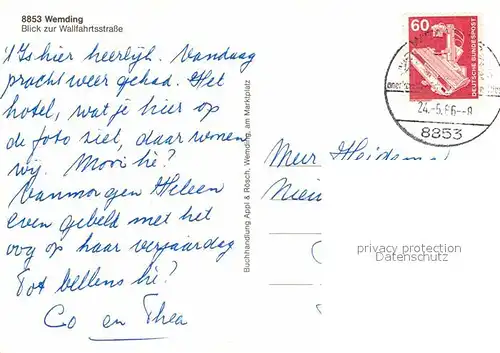 8853 Wemding
Blick zur Wallfahrtsstraße
't Is hier heerlijk. Vandaag
prachtweer gehad. Het
hotel, wat je hier op
de foto ziet, daar wonen
wij. Mooi hè?
Vanmorgen Heleen
even gebeld met het
oog op haar verjaardag
Tot bellens hè?
Co en Thea
Buchhandlung Appl & Rösch, Wemding, am Marktplatz
60
DEUTSCHE BUNDESPOST
24.-5.86.-8
8853
Meur Heidema
Nieu
privacy protection
Datenschutz